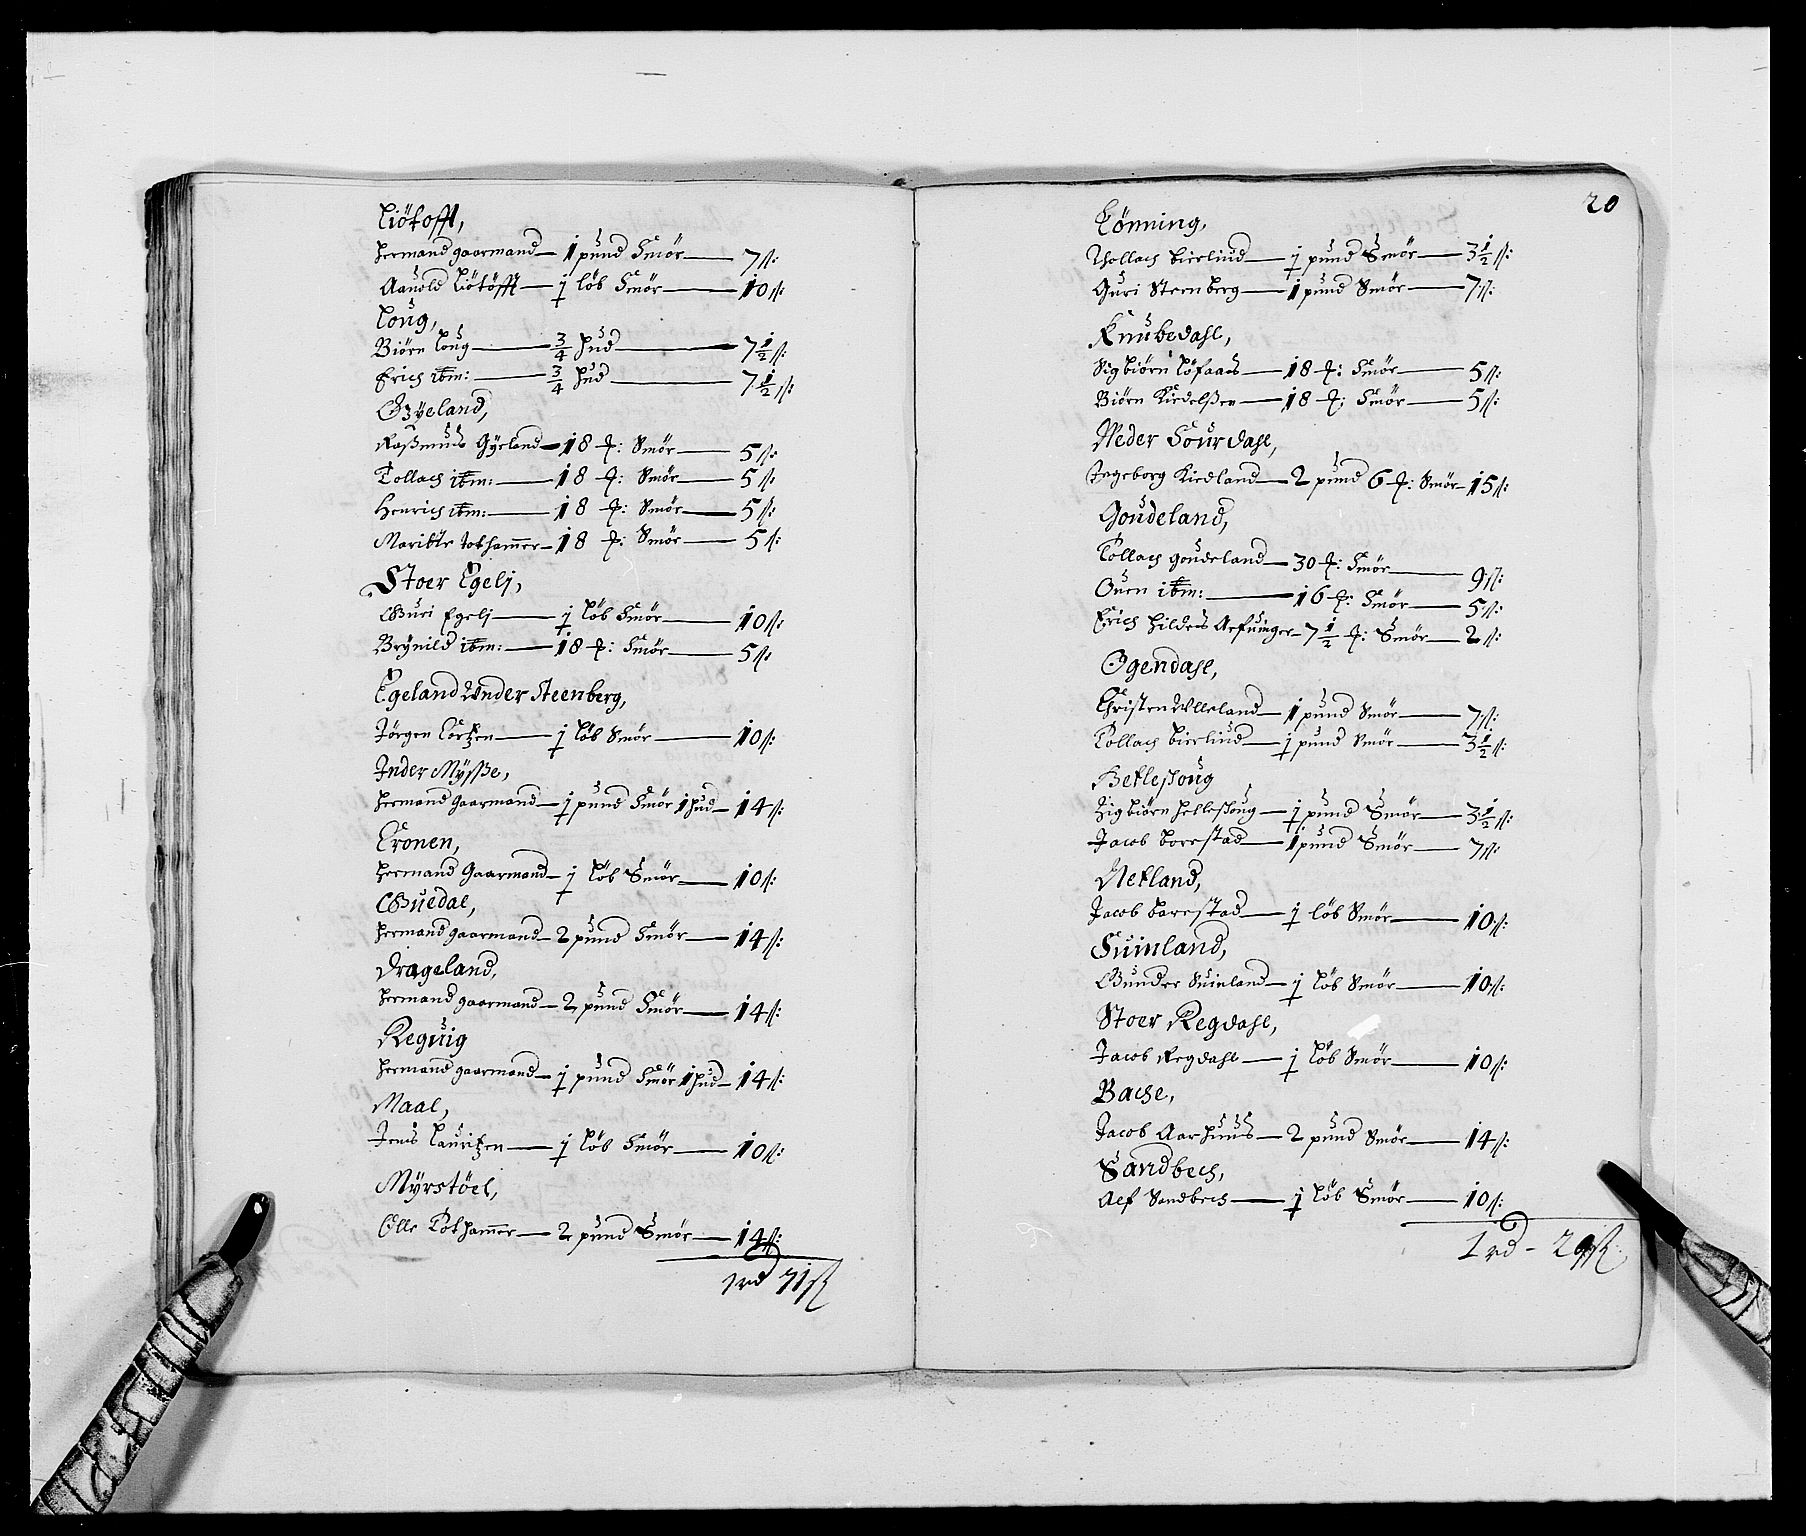 Liötofft,
Hermand gaarmand — 1 pund Smör — 7 ß:
Aanold Liötöfft — ½ löb Smör — 10 ß:
Loug,
Biörn Loug — 3/4 hud — 7½ ß:
Erich ibm: — 3/4 hud — 7½ ß:
Gyeland,
Rasmus Gÿeland — 18 ℔: Smör — 5 ß:
Tollach ibm: — 18 ℔: Smör — 5 ß:
Henrich ibm: — 18 ℔: Smör — 5 ß:
Maritte Tothammer — 18 ℔: Smör — 5 ß:
Stoer Egelj,
Guri Egelj — ½ löb Smör — 10 ß:
Brÿnild ibm: — 18 ℔: Smör — 5 ß:
Egeland Under Steenberg,
Jörgen Lortzen — ½ löb Smör — 10 ß:
Inder Mÿsse,
Hermand Gaarmand — ½ pund Smör 1 hud — 14 ß:
Tronen,
Hermand Gaarmand — ½ löb Smör — 10 ß:
Guedal,
Hermand gaarmand — 2 pund Smör — 14 ß:
Drageland,
Hermand gaarmand — 2 pund Smör — 14 ß:
Reguig
Hermand gaarmand — ½ pund Smör 1 hud — 14 ß:
Maal,
Jens Lauritzen — ½ löb Smör — 10 ß:
Mÿrstöel,
Olle Tothammer — 2 pund Smör — 14 ß:
1 rd 71 ß
20
Lönning,
Thollach Bierliud — ½ pund Smör — 3½ ß:
Guri Steenberg — 1 pund Smör — 7 ß:
Knubedahl,
Sigbiörn Löfaas — 18 ℔: Smör — 5 ß:
Biörn Kiedelssen — 18 ℔: Smör — 5 ß:
Neder Sourdahl,
Ingeborg Kiedland — 2 pund 6 ℔: Smör — 15 ß:
Goudeland,
Tollach goudeland — 30 ℔: Smör — 9 ß:
Ouen ibm: — 16 ℔: Smör — 5 ß:
Erich Hildes Arfuinger — 7½ ℔: Smör — 2 ß:
Ogendahl,
Christen Ulleland — 1 pund Smör — 7 ß:
Tollach Bierliud — ½ pund Smör — 3½ ß:
Hetlessoug
Sigbiörn Hetlessoug — ½ pund Smör — 3½ ß:
Jacob Borrestad — 1 pund Smör — 7 ß:
Netland,
Jacob Borrestad — ½ löb Smör — 10 ß:
Suinland,
Gunder Suinland — ½ löb Smör — 10 ß:
Stoer Regdahl,
Jacob Regdahl — ½ löb Smör — 10 ß:
Bache,
Jacob Aarhuus — 2 pund Smör — 14 ß:
Sandbech,
Alf Sandbech — ½ löb Smör — 10 ß:
1 rd - 29 ß.